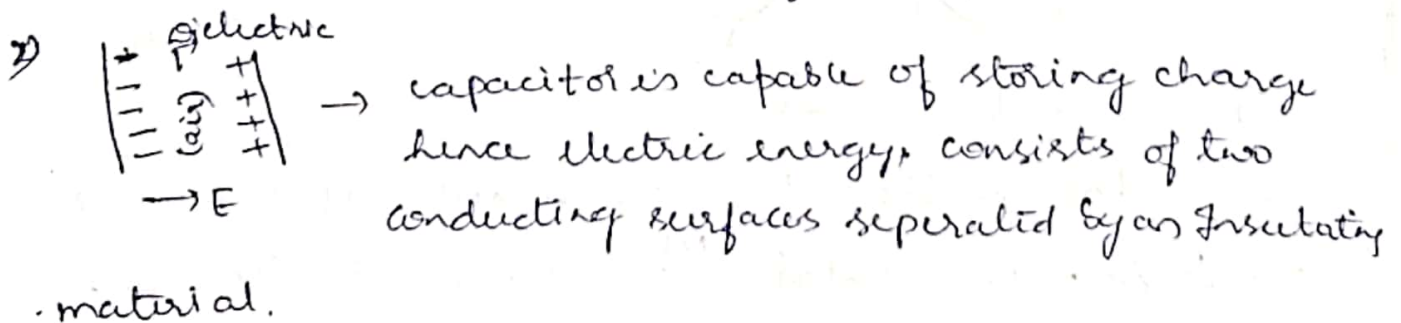 2)
Dielectric
(air)
→ E
→ capacitor is capable of storing charge
hence electric energy, consists of two
conducting surfaces seperated by an Insulating
material.